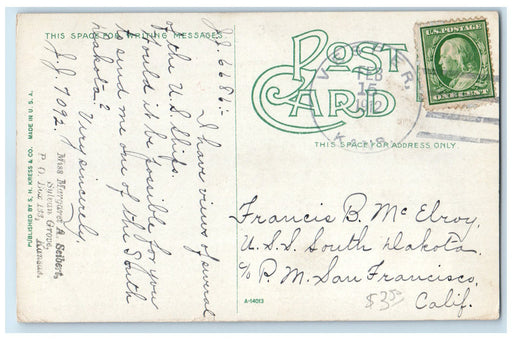 THIS SPACE FOR WRITING MESSAGES
J.J. 6686:-
I have views of several
of the U.S. Ships.
Would it be possible for you
to send me one of the South
Dakota?
Very sincerely,
J.J. 7092.
Miss Margaret A. Seibert,
Sylvan Grove,
P. O. Box 132, Kansas.
PUBLISHED BY S. H. KRESS & CO. MADE IN U. S. A.
POST
CARD
THIS SPACE FOR ADDRESS ONLY
FEB
15
KANS.
U.S. POSTAGE
ONE CENT
Francis B. McElroy,
U.S.S. South Dakota,
c/o P.M. San Francisco,
Calif.
$3.50
A-14013